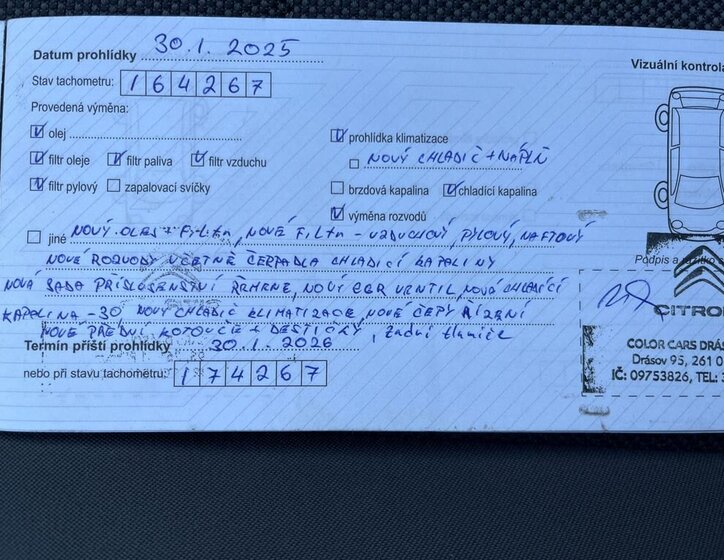 Datum prohlídky 30.1. 2025
Vizuální kontrola
Stav tachometru: 164267
Provedená výměna:
olej
prohlídka klimatizace
NOVÝ CHLADIČ + NÁPLŇ
filtr oleje filtr paliva filtr vzduchu
filtr pylový zapalovací svíčky
brzdová kapalina chladící kapalina
výměna rozvodů
jiné NOVÝ OLEJ + FILTR, NOVÉ FILTR - VZDUCHOVÝ, PYLOVÝ, NAFTOVÝ
NOVÉ ROZVODY VČETNĚ ČERPADLA CHLADICÍ KAPALINY
NOVÁ SADA PŘÍSLUŠENSTVÍ ŘEMENE, NOVÝ EGR VENTIL, NOVÁ CHLADÍCÍ
KAPALINA -30 NOVÝ CHLADIČ KLIMATIZACE, NOVÉ ČEPY ŘÍZENÍ
NOVÉ PŘEDNÍ KOTOUČE + DESTIČKY, zadní tlumiče
Termín příští prohlídky 30.1. 2026
nebo při stavu tachometru: 174267
Podpis a
CITRO
COLOR CARS DRÁS
Drásov 95, 261 0
IČ: 09753826, TEL: